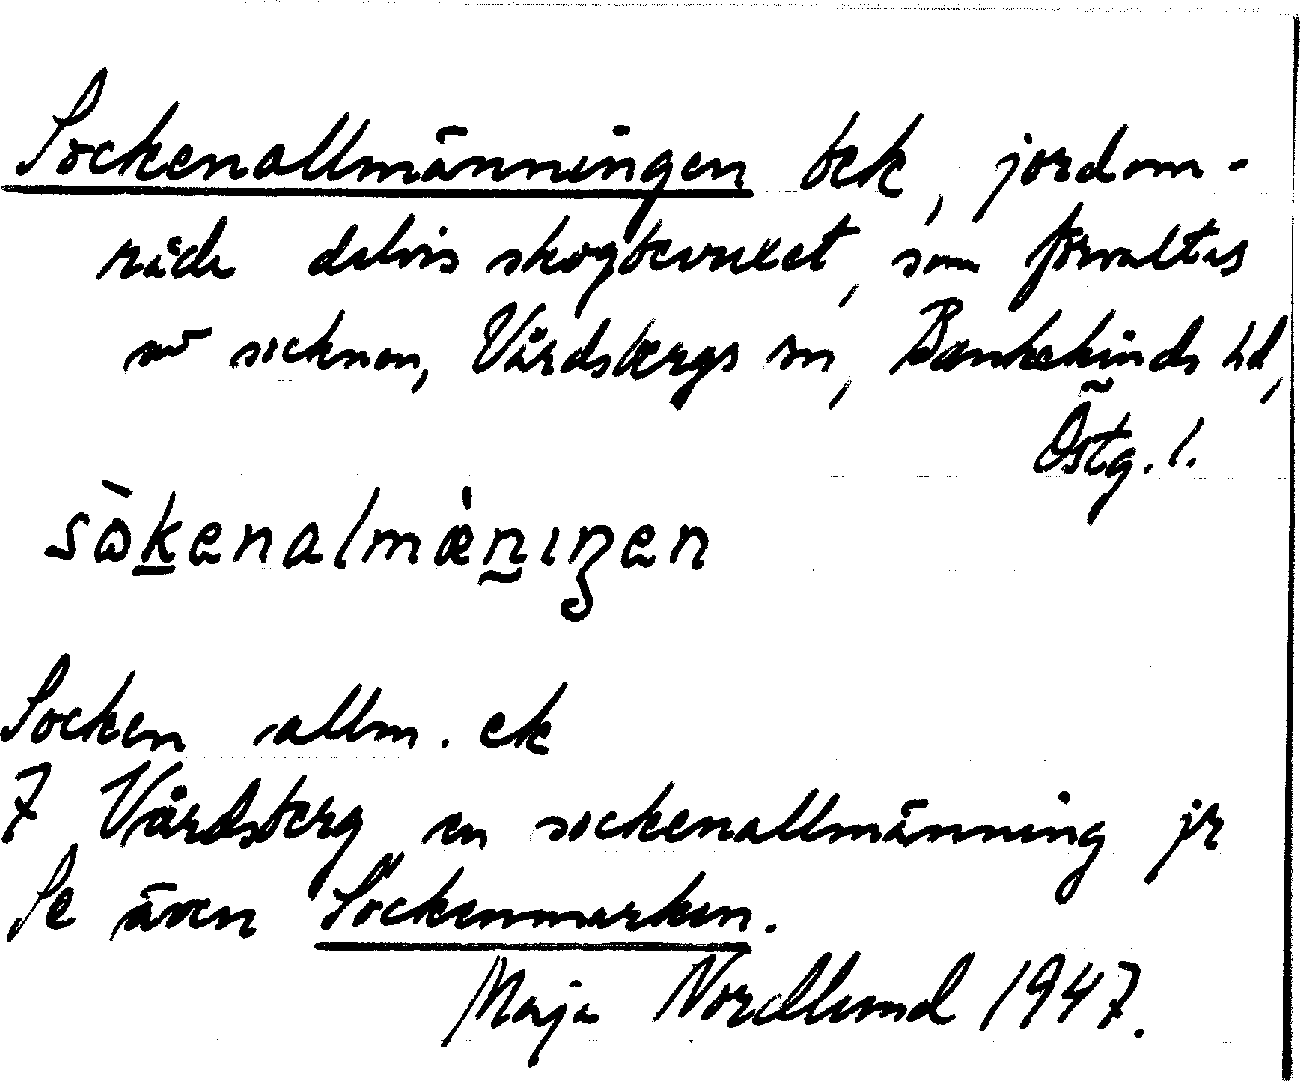 Sockenallmänningen bek, jordom-
råde delvis skogbevuxet, som förvaltas
av socknen, Vårdsbergs sn, Bankekinds hd,
Östg. l.
Socken allm. ek
7 Vårdsberg en sockenallmänning jr
Se även Sockenmarken.
Maja Nordlund 1947.